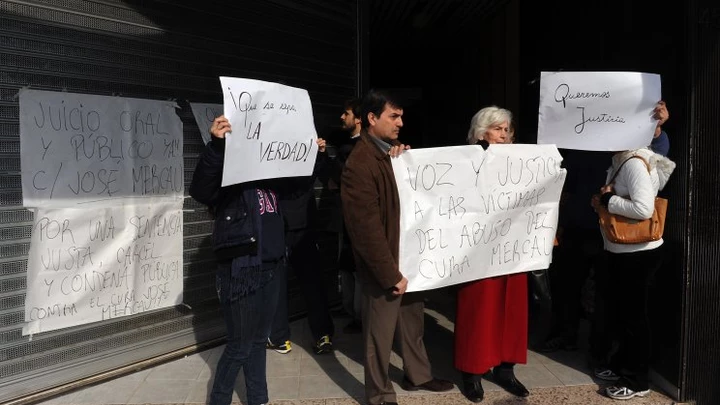 JUICIO ORAL
Y PÚBLICO YA!!
C/ JOSÉ MERCAU
POR UNA SENTENCIA
JUSTA, CARCEL
Y CONDENA PÚBLICA
CONTRA EL CURA JOSÉ
MERCAU
¡Que se sepa
LA
VERDAD!
VOZ Y JUSTICIA
A LAS VÍCTIMAS
DEL ABUSO DEL
CURA MERCAU.
Queremos
Justicia